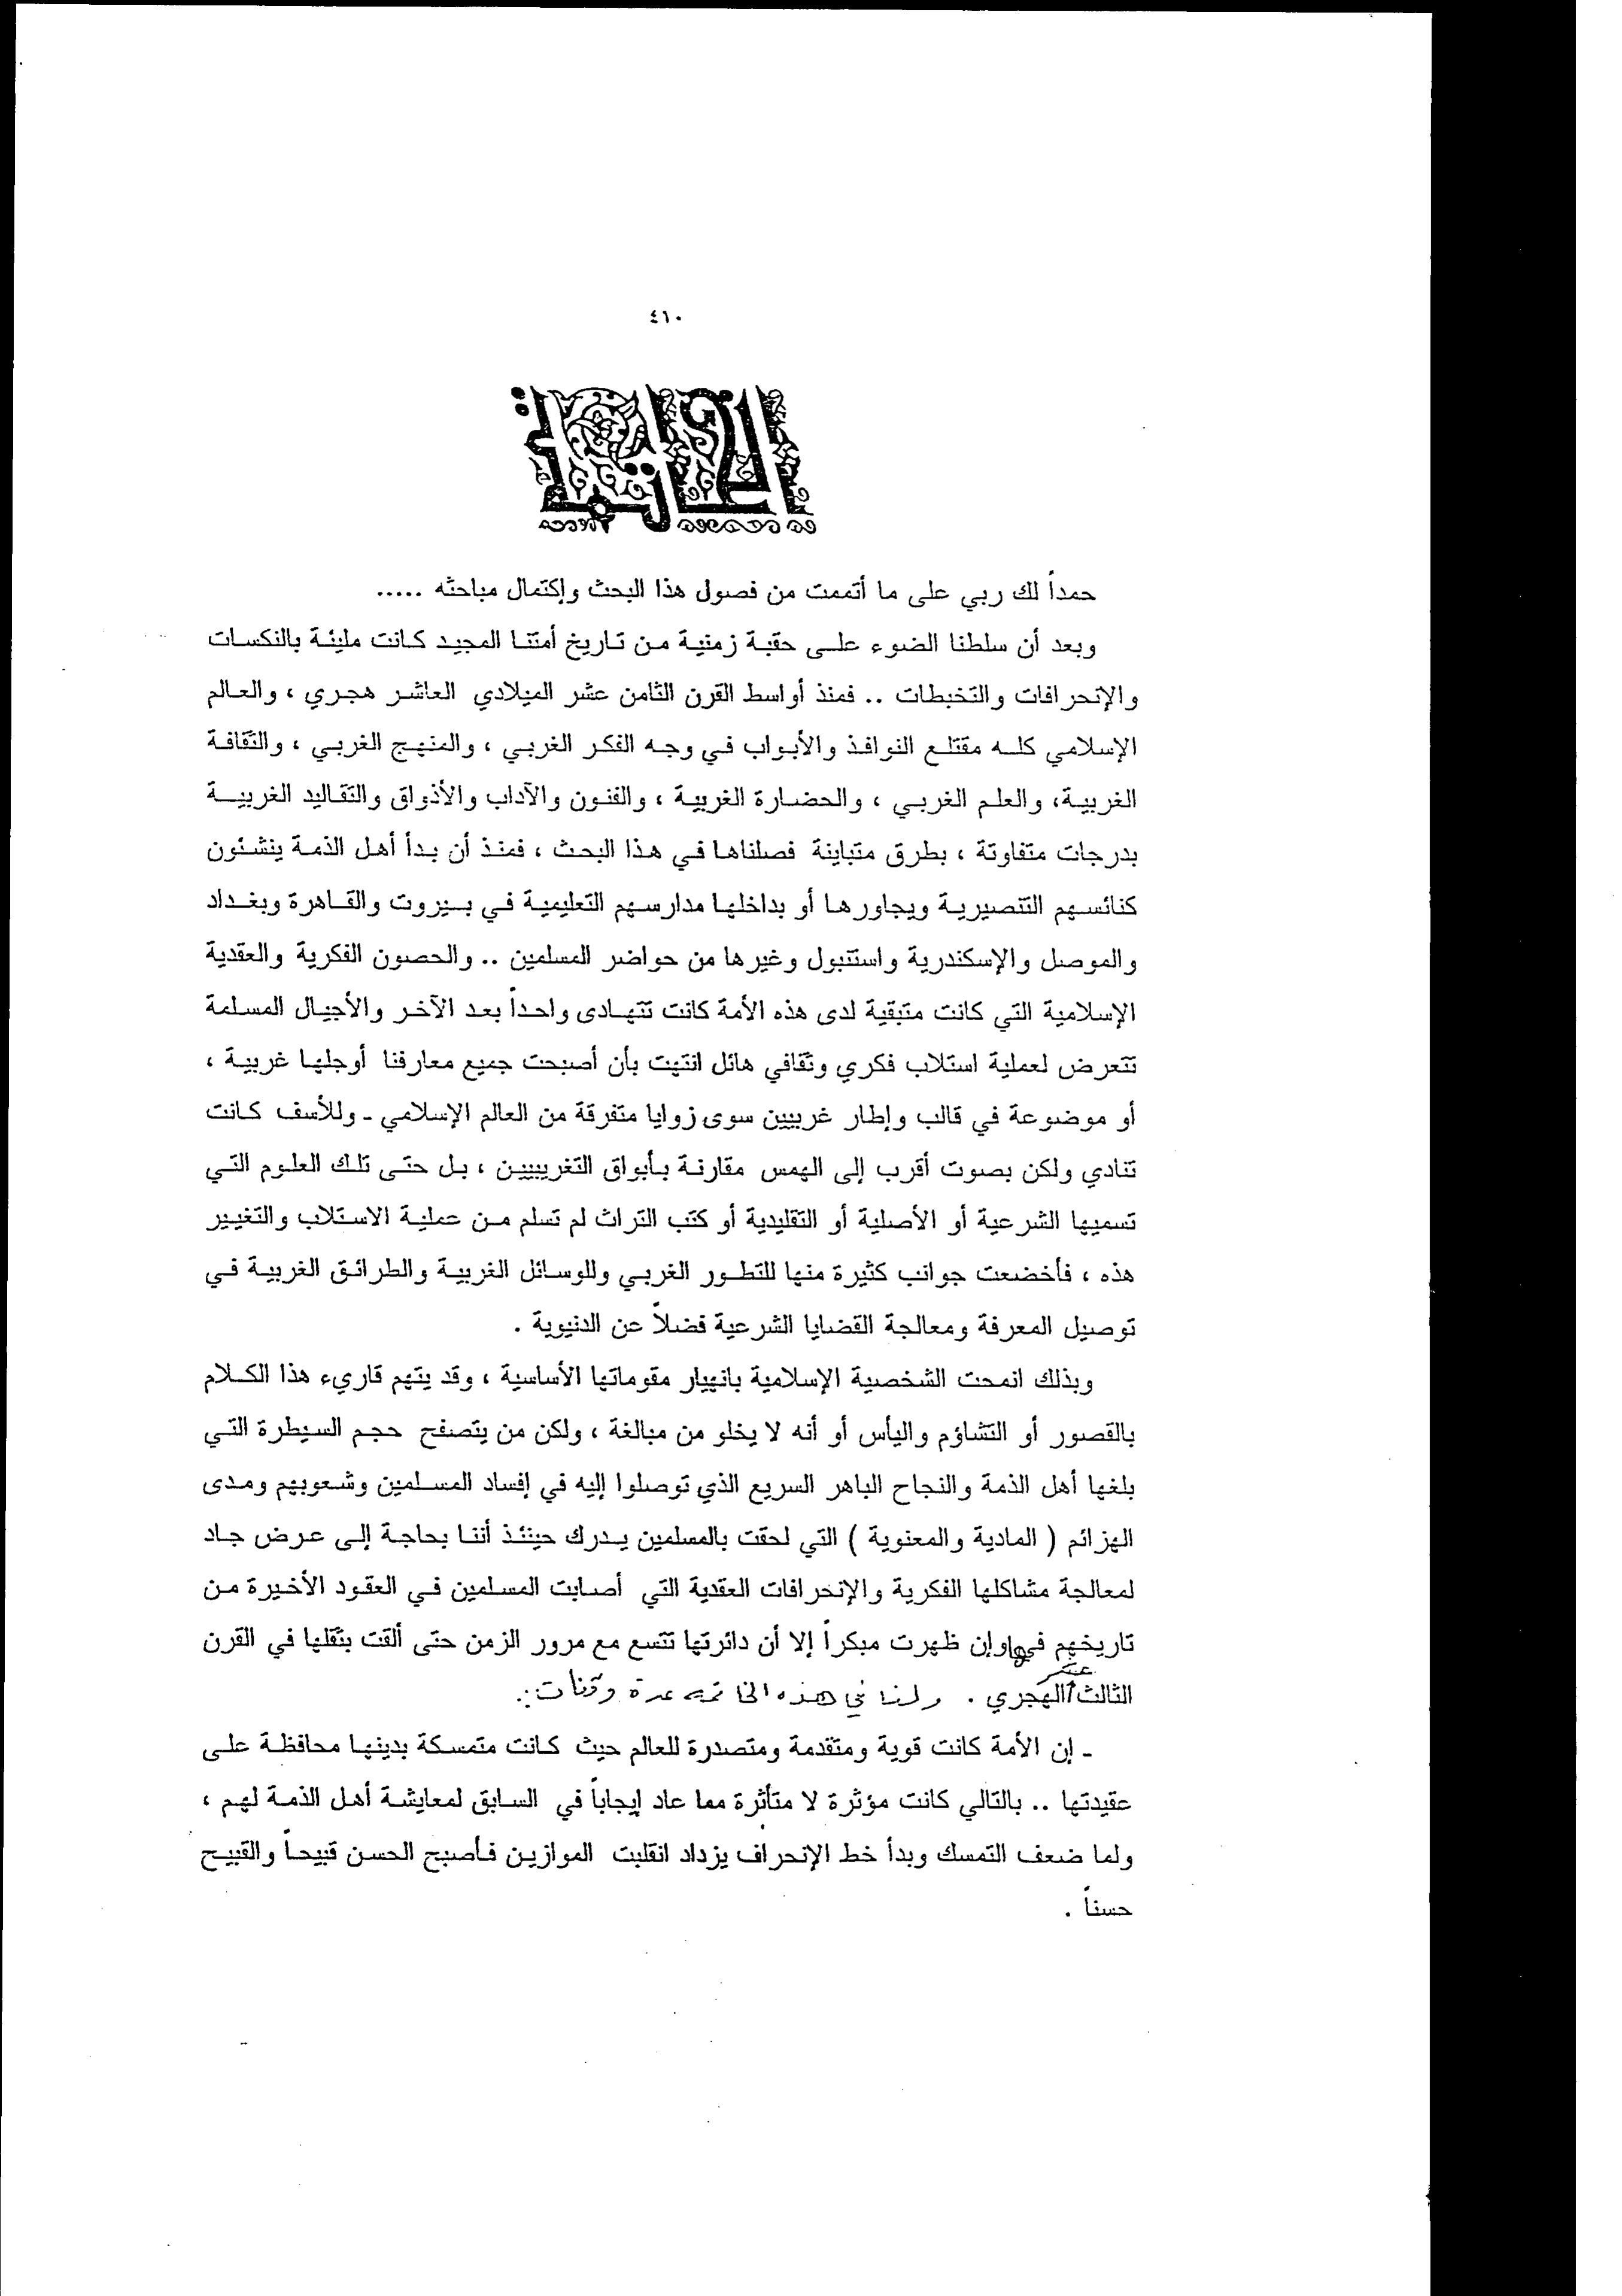 ٤١٠
الخاتمة
حمداً لك ربي على ما أتممت من فصول هذا البحث وإكتمال مباحثه .....
وبعد أن سلطنا الضوء على حقبة زمنية من تاريخ أمتنا المجيد كانت مليئة بالنكسات
والإنحرافات والتخبطات .. فمنذ أواسط القرن الثامن عشر الميلادي العاشر هجري ، والعالم
الإسلامي كله مقتلع النوافذ والأبواب في وجه الفكر الغربي ، والمنهج الغربي ، والثقافة
الغربية، والعلم الغربي ، والحضارة الغربية ، والفنون والآداب والأذواق والتقاليد الغربية
بدرجات متفاوتة ، بطرق متباينة فصلناها في هذا البحث ، فمنذ أن بدأ أهل الذمة ينشئون
كنائسهم التنصيرية ويجاورها أو بداخلها مدارسهم التعليمية في بيروت والقاهرة وبغداد
والموصل والإسكندرية واستنبول وغيرها من حواضر المسلمين .. والحصون الفكرية والعقدية
الإسلامية التي كانت متبقية لدى هذه الأمة كانت تتهادى واحداً بعد الآخر والأجيال المسلمة
تتعرض لعملية استلاب فكري وثقافي هائل انتهت بأن أصبحت جميع معارفنا أوجلها غربية ،
أو موضوعة في قالب وإطار غربيين سوى زوايا متفرقة من العالم الإسلامي ـ وللأسف كانت
تنادي ولكن بصوت أقرب إلى الهمس مقارنة بأبواق التغريبيين ، بل حتى تلك العلوم التي
تسميها الشرعية أو الأصلية أو التقليدية أو كتب التراث لم تسلم من عملية الاستلاب والتغيير
هذه ، فأخضعت جوانب كثيرة منها للتطور الغربي وللوسائل الغربية والطرائق الغربية في
توصيل المعرفة ومعالجة القضايا الشرعية فضلاً عن الدنيوية .
وبذلك انمحت الشخصية الإسلامية بانهيار مقوماتها الأساسية ، وقد يتهم قاريء هذا الكلام
بالقصور أو التشاؤم واليأس أو أنه لا يخلو من مبالغة ، ولكن من يتصفح حجم السيطرة التي
بلغها أهل الذمة والنجاح الباهر السريع الذي توصلوا إليه في إفساد المسلمين وشعوبهم ومدى
الهزائم ( المادية والمعنوية ) التي لحقت بالمسلمين يدرك حينئذ أننا بحاجة إلى عرض جاد
لمعالجة مشاكلها الفكرية والإنحرافات العقدية التي أصابت المسلمين في العقود الأخيرة من
تاريخهم فهي وإن ظهرت مبكراً إلا أن دائرتها تتسع مع مرور الزمن حتى ألقت بثقلها في القرن
الثالث عشر الهجري . ولنا في هذه الخاتمة عدة وقفات :.
ـ إن الأمة كانت قوية ومتقدمة ومتصدرة للعالم حيث كانت متمسكة بدينها محافظة على
عقيدتها .. بالتالي كانت مؤثرة لا متأثرة مما عاد إيجاباً في السابق لمعايشة أهل الذمة لهم ،
ولما ضعف التمسك وبدأ خط الإنحراف يزداد انقلبت الموازين فأصبح الحسن قبيحاً والقبيح
حسناً .